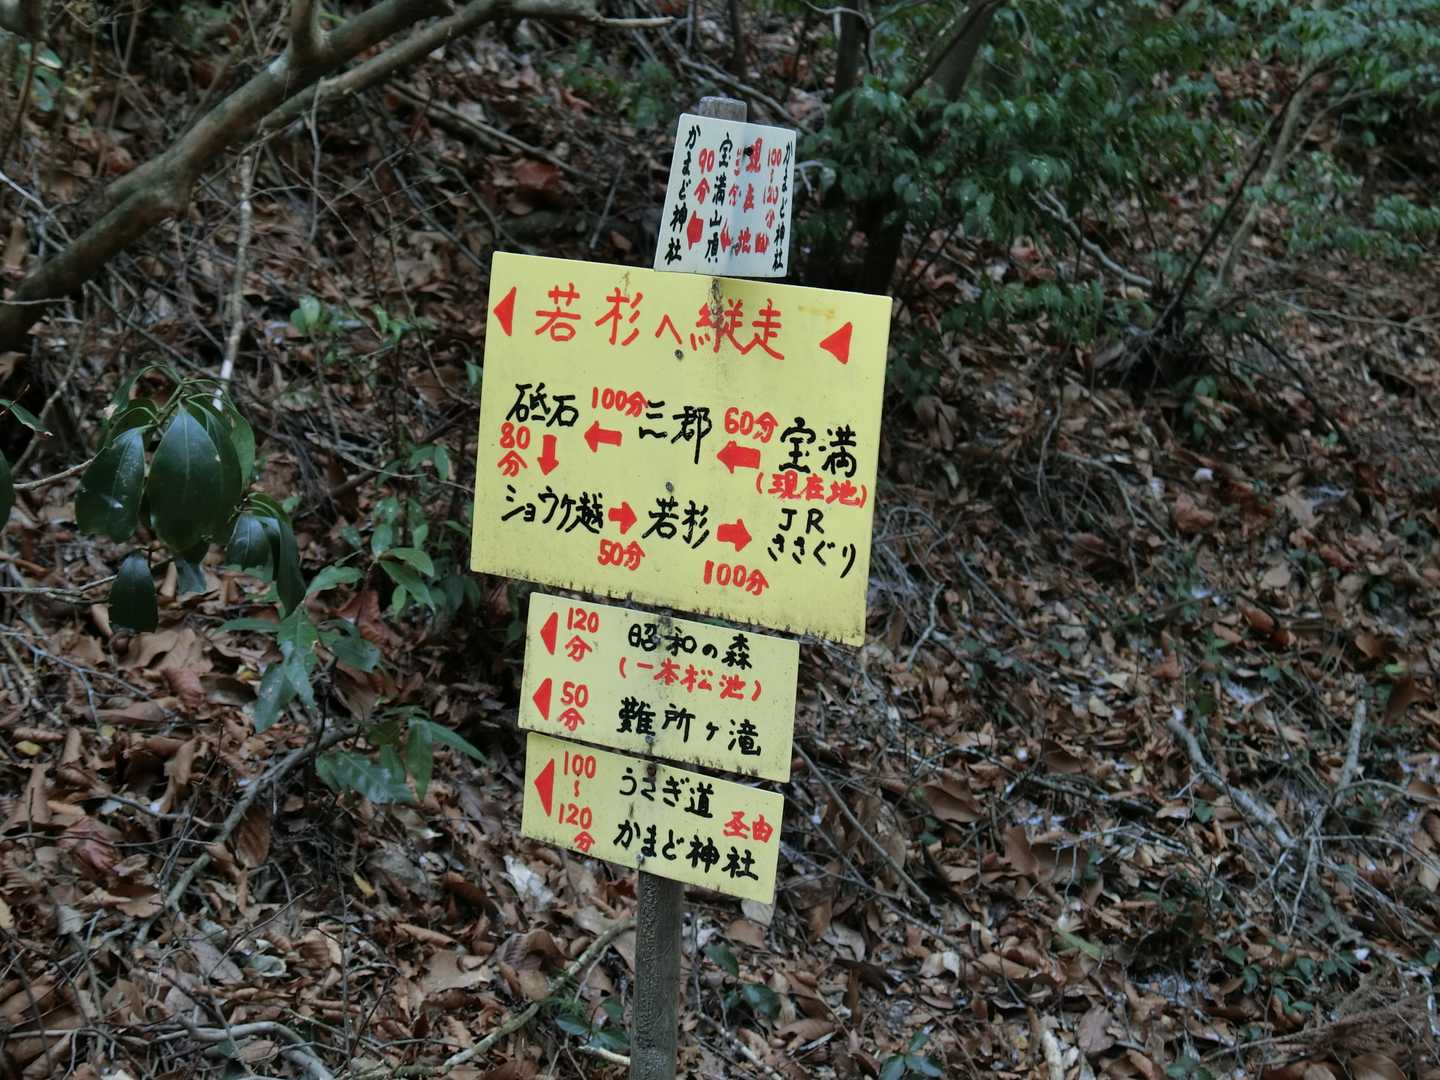 かまど神社
100~120分
現在地
宝満山頂
90分
かまど神社
若杉へ縦走
砥石 100分 三郡 60分 宝満
80分
(現在地)
ショウケ越 若杉 JR
ささぐり
50分 100分
120分 昭和の森
(一本松池)
50分 難所ヶ滝
100~120分 うさぎ道
かまど神社